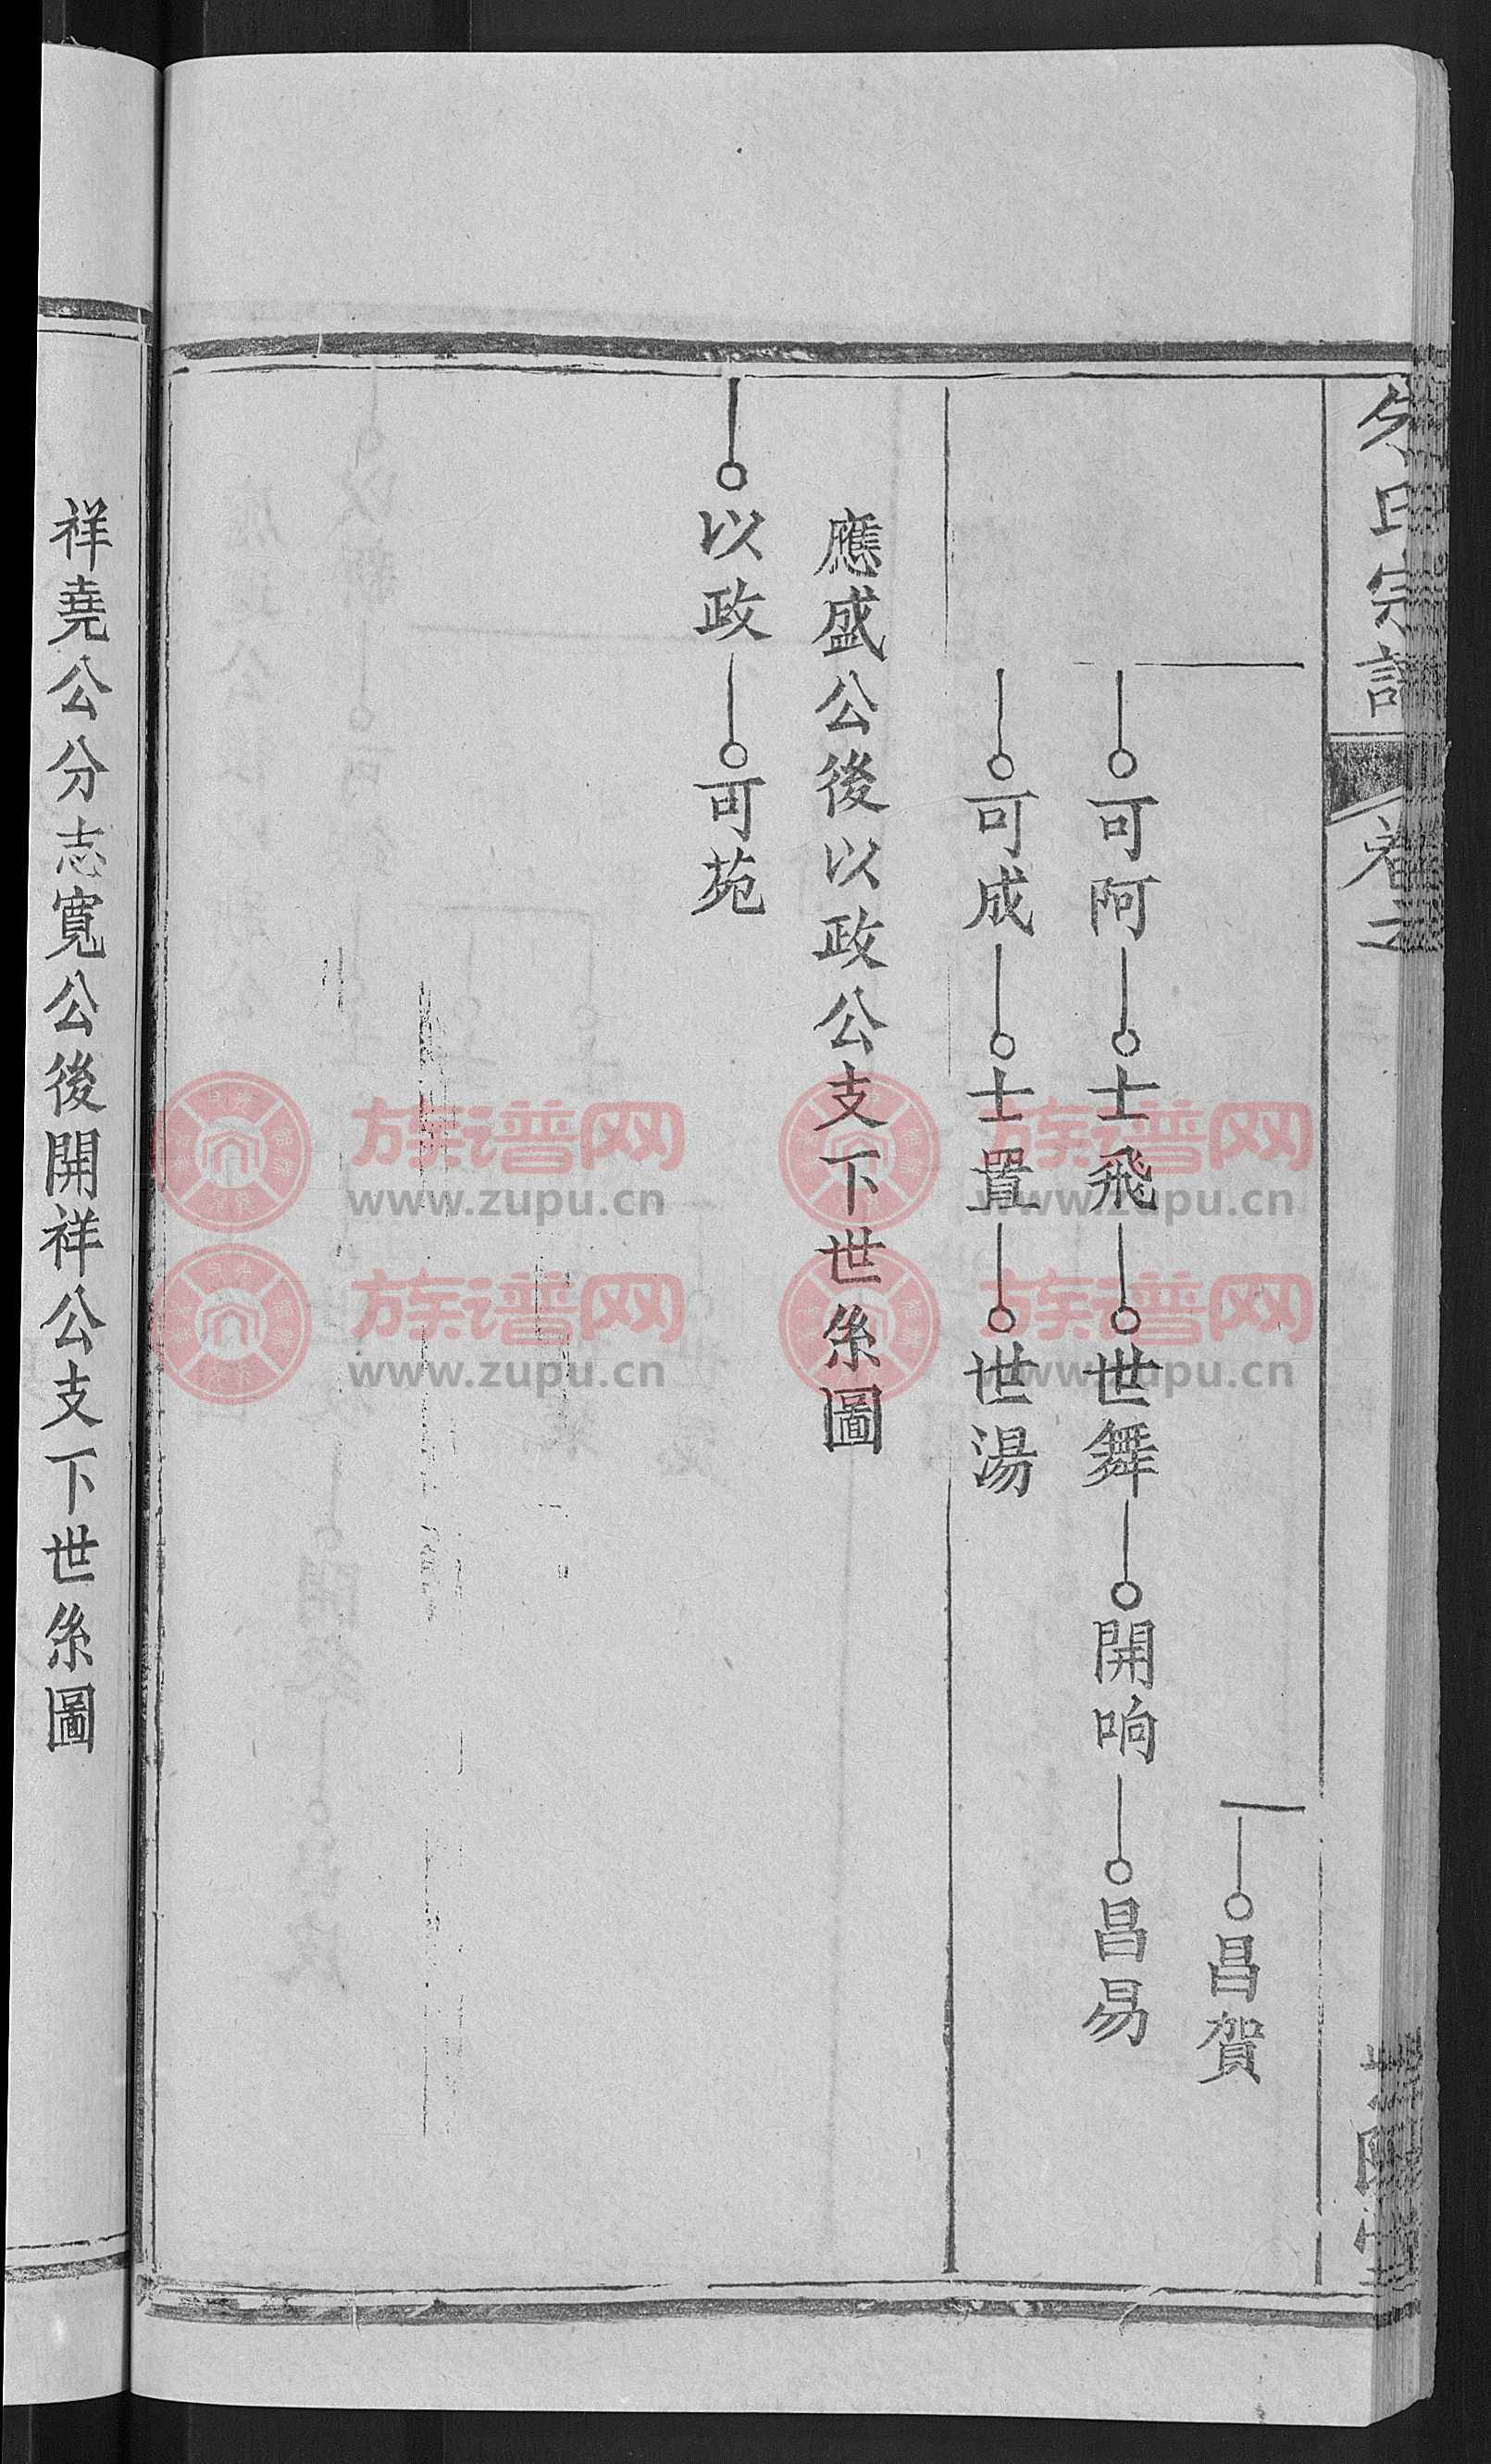 氏宗譜
卷之
昌賀
可阿 士飛 世舞 開响 昌易
可成 士置 世湯
應盛公後以政公支下世系圖
以政 可苑
祥堯公分志寬公後開祥公支下世系圖
族谱网 www.zupu.cn
族谱网 www.zupu.cn
族谱网 www.zupu.cn
族谱网 www.zupu.cn